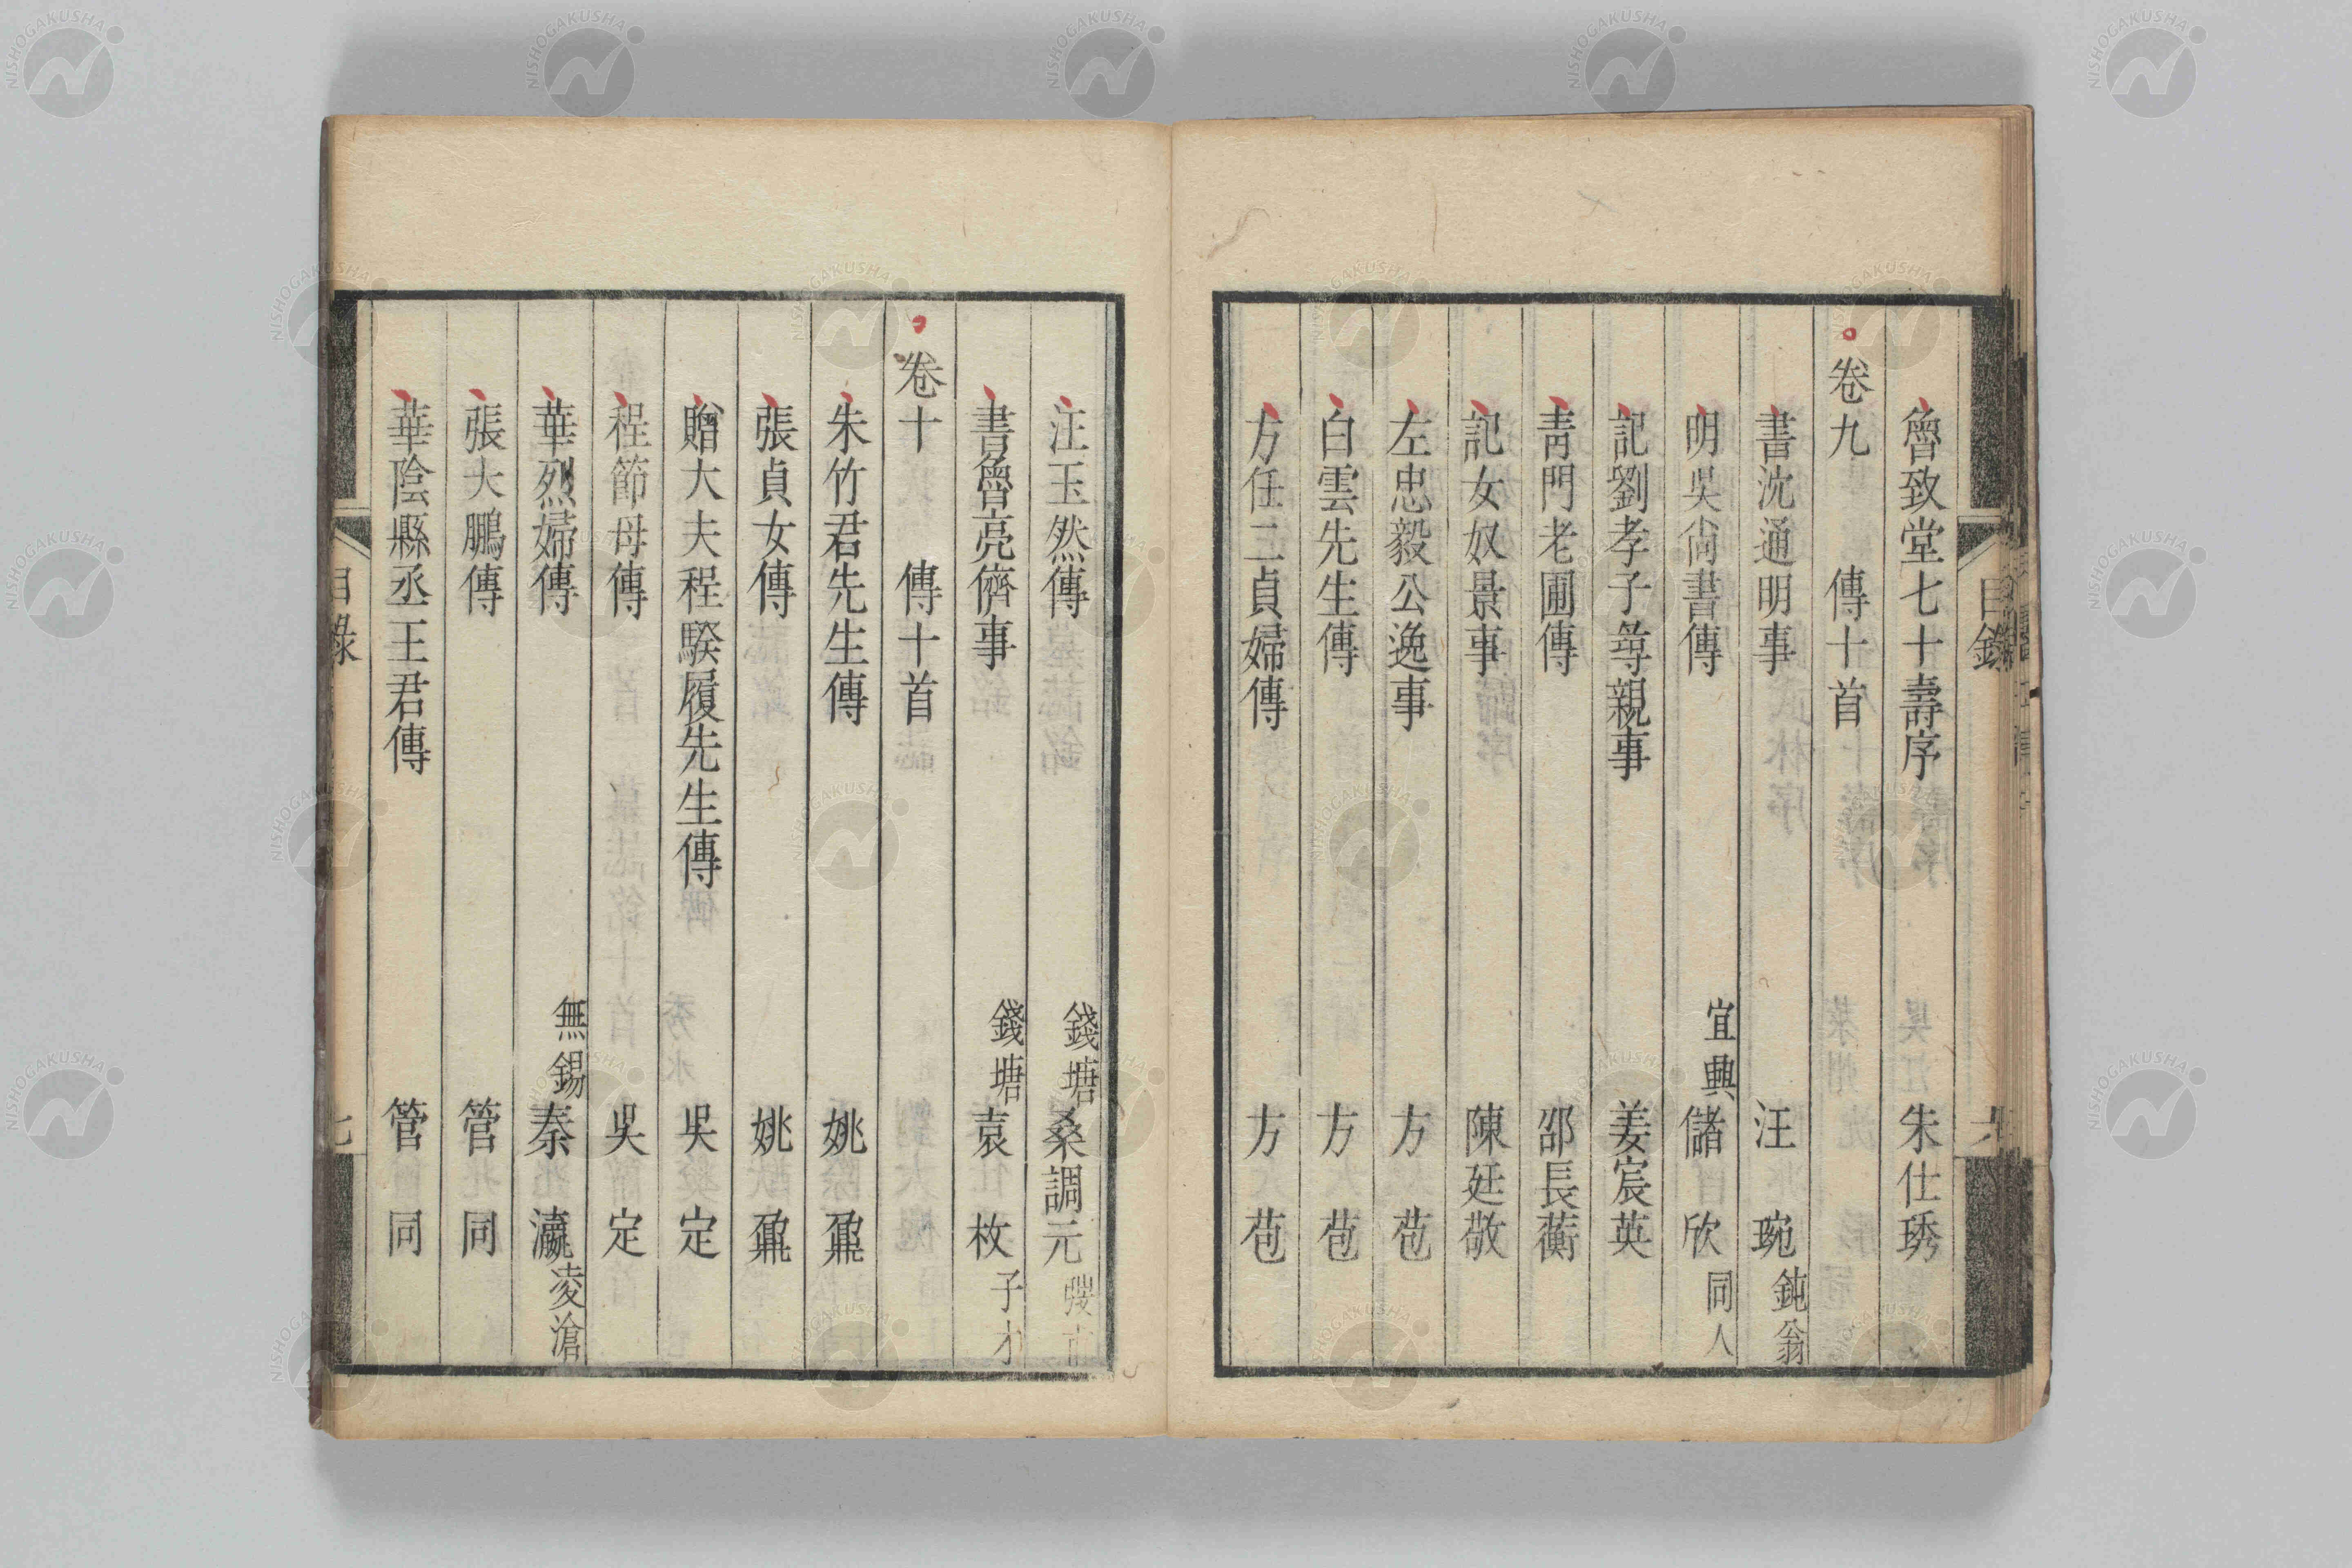 魯致堂七十壽序 朱仕琇
卷九 傳十首
書沈通明事 汪琬 鈍翁
明吳尚書傳 宜興 儲欣 同人
記劉孝子尋親事 姜宸英
靑門老圃傳 邵長蘅
記女奴景事 陳廷敬
左忠毅公逸事 方苞
白雲先生傳 方苞
方任二貞婦傳 方苞
目錄
汪玉然傳 錢塘 桑調元
書魯亮儕事 錢塘 袁枚 子才
卷十 傳十首
朱竹君先生傳 姚鼐
張貞女傳 姚鼐
贈大夫程騤履先生傳 吳定
程節母傳 吳定
華烈婦傳 無錫 秦瀛 凌滄
張大鵬傳 管同
華陰縣丞王君傳 管同
目錄 七
NISHOGAKUSHA